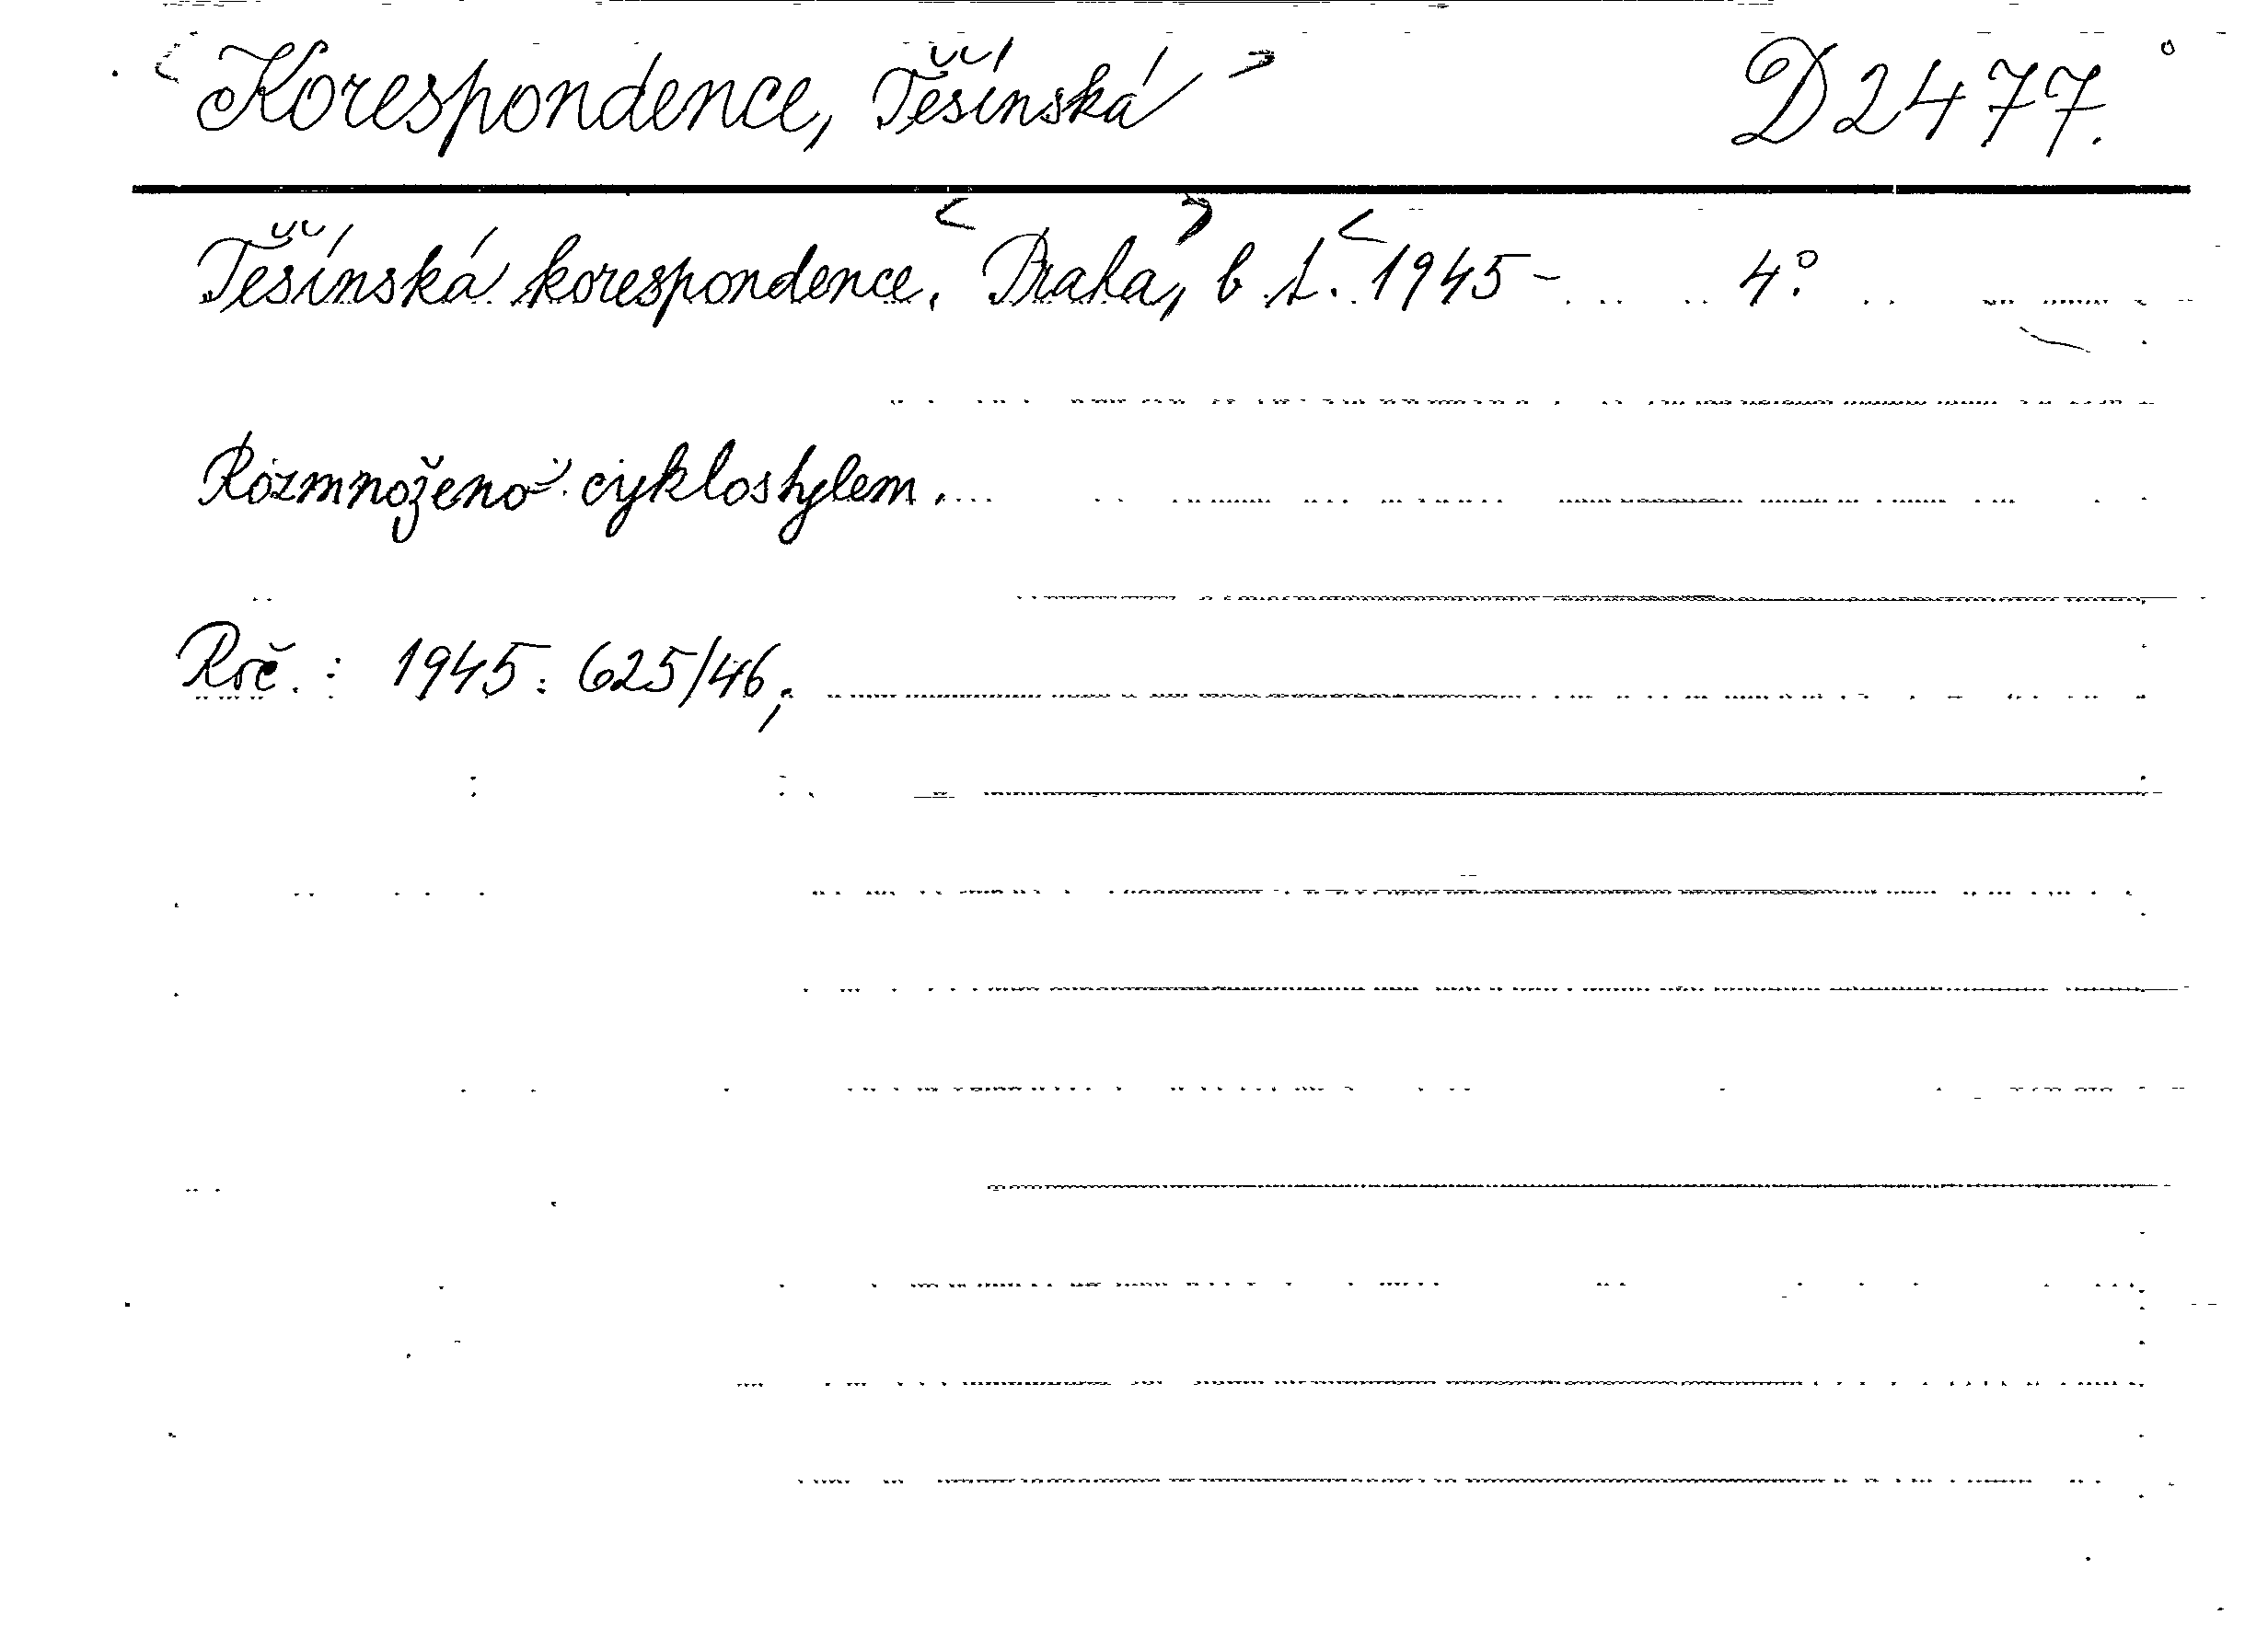 <Korespondence, Těšínská> D 2477.
Těšínská korespondence. <Praha,> b. t. <1945- 4°
Rozmnoženo cyklostylem.
Rrč.: 1945: 625/46;